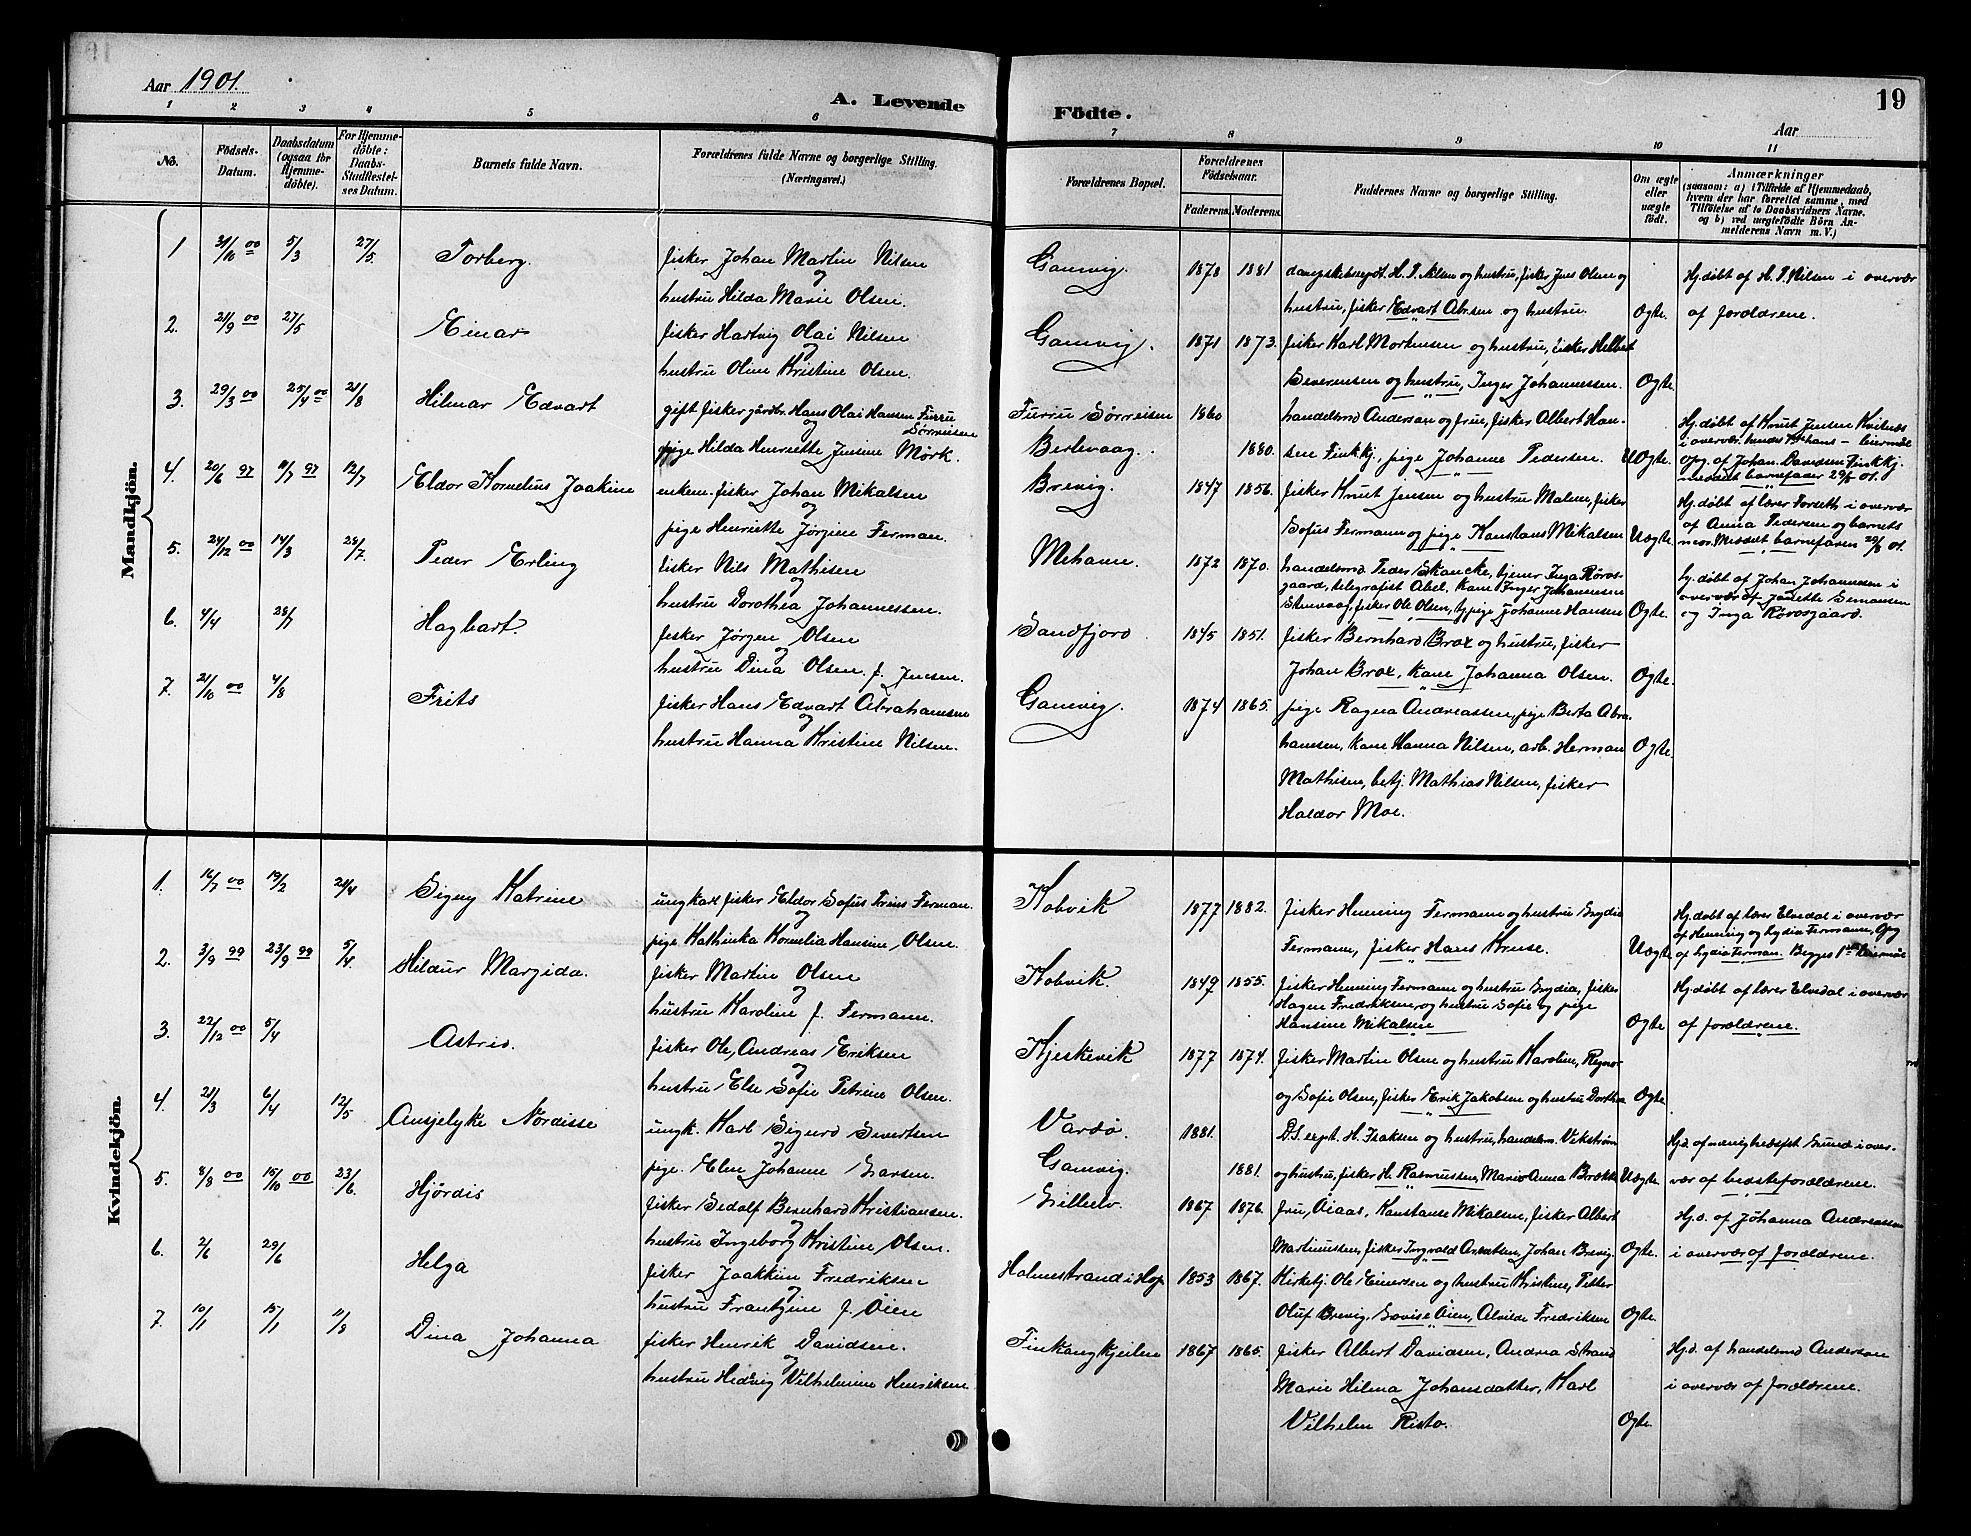 Aar 1901.
A. Levende Födte.
19
Aar
1 2 3 4 5 6 7 8 9 10 11
No.
Födsels-Datum.
Daabsdatum (ogsaa for Hjemme-döbte).
For Hjemme-döbte: Daabs-Stadfæstel-ses Datum.
Barnets fulde Navn.
Forældrenes fulde Navne og borgerlige Stilling. (Næringsvei.)
Forældrenes Bopæl.
Forældrenes Födselsaar.
Faderens. Moderens.
Faddernes Navne og borgerlige Stilling.
Om ægte eller uægte födt.
Anmærkninger
(saasom: a) i Tilfælde af Hjemmedaab, hvem der har forrettet samme, med Tilföielse af to Daabsvidners Navne. og b) ved uægtefödte Börn An-melderens Navn m. V.)
Mandkjön.
1 31/10 00 5/3 27/5 Torberg. fisker Johan Martin Nilsen og hustru Hilda Marie Olsen. Gamvig. 1878 1881 H. P. Nilsen og hustru, fisker Jens Olsen og hustru, fisker Edvart Abr.sen og hustru. Ægte. Hj. døbt af H. P. Nilsen i overvær af forældrene.
2. 21/9 00 27/5 Einar fisker Hartvig Olai Nilsen og hustru Oline Kristine Olsen. Gamvig. 1871 1873. fisker Karl Mortensen og hustru, fisker Helbert Severinsen og hustru, Inger Johannessen. Ægte.
3. 29/3 00 25/4 00 21/8 Hilmar Edvart gift fisker gårdbr. Hans Olai Hansen Furru Sørreisen og pige Hilda Henriette Jensine Mørk. Furru Sørreisen Berlevaag. 1860 1880. handelsmd Anderson og frue, fisker Albert Hansen Finkkj., pige Johanne Pedersen. Uægte. Hj. døbt af Knut Jensen Kvitnes i overvær. hendes 1ste hans – leiermål Opg. af Johan Davidsen Finkkj. meddelt barnefaar 29/8 01.
4. 20/6 97 11/7 97 12/7 Eldor Kornelius Joakim enkem. fisker Johan Mikalsen og pige Henriette Jørgine Ferman. Brevig. 1847 1856. fisker Knut Jensen og hustru Malene, fisker Sofus Fermann og pige Konstans Mikalsen Uægte. Hj. døbt af lærer Forseth i overvær af Anna Pedersen og barnets mor. Meddelt barnefaren 29/8 01.
5. 24/12 00 14/3 28/7 Peder Erling fisker Nils Mathisen og hustru Dorothea Johannessen. Mehamn. 1872 1870. handelsmd Peder Skancke, tjener Inga Røvosgaard, telegrafist Abel, kone Inger Johannessen Stenvaag, fisker Ole Olsen, pige Johanne Hansen Ægte. hj. døbt af Johan Johannessen i overvær af Janette Simonsen og Inga Røvosgaard.
6. 4/4 28/7 Hagbart. fisker Jørgen Olsen og hustru Dina Olsen f. Jensen. Sandfjord. 1845 1851. fisker Bernhard Brox og hustru, fisker Johan Brox, kone Johanna Olsen. Ægte.
7. 21/10 00 4/8 Frits fisker Hans Edvart Abrahamsen og hustru Hanna Kristine Nilsen. Gamvig. 1874 1865. pige Ragna Andreassen, pige Berta Abrahamsen, kone Hanna Nilsen, arb. Herman Mathisen, betj. Mathias Nilsen, fisker Haldor Moe. Ægte.
Kvindekjön.
1. 16/7 00 19/2 21/4 Signy Katrine ungkarl fisker Eldor Sofus Ferman. og pige Kathinka Kornelia Hansine Olsen. Kobvik 1877 1882. fisker Henning Fermann og hustru Lydia Fermann, fisker Hans Kruse. Uægte Hj. døbt af lærer Elvedal i overvær af Henning og Lydia Fermann, Opg af Lydia Ferman. Begges 1ste leiermål
2. 3/9 99 23/9 99 5/4 Hildur Margida. fisker Martin Olsen og hustru Karoline f. Fermann. Kobvik. 1849 1855. fisker Henning Fermann og hustru Lydia, fisker Hagen Fredriksen og hustru Sofie og pige Hansine Mikalsen Ægte Hj. døbt af lærer Elvedal i overvær af forældrene.
3. 22/12 00 5/4 Astrid. fisker Ole Andreas Eriksen og hustru Else Sofie Petrine Olsen. Kjeskevik 1877 1874. fisker Martin Olsen og hustru Karoline, Ragna og Sofie Olsen, fisker Erik Jakobsen og hustru Dorthea Ægte.
4. 21/3 6/4 12/5 Ansjelyke Nordisse ungk. Karl Sigurd Sivertsen pige. Elen Johanne Larsen. Vardø. Gamvig. 1881. 1881. D.S. expt. H. Isaksen og hustru, handelsm. Vikstrøm og hustru, fisker H. Rasmussen, Marie Anna Brække Uægte Hjd. af menighedsf. Gund i overvær af bedsteforældrene.
5. 8/8 00 15/10 00 23/6. Hjørdis fisker Sedolf Bernhard Kristiansen. og hustru Ingeborg Kristine Olsen. 1867 1876. fru Aiaas, Konstanse Mikalsen, fisker Albert Martinussen, fisker Ingvald Arentsen, Johan Brevig. Ægte. Hj.d. af Johanna Andreassen i overvær af forældrene.
6. 2/6 29/6 Helga fisker Joakkim Fredriksen og hustru Frantzine f. Öien Holmestrand i Hop 1853 1867. Kirketj. Ole Einersen og hustru Kristine, Petter Oluf Brevig, Lovise Öien, Alvilde Fredriksen Ægte.
7. 10/1 15/1 11/8 Dina Johanna fisker Henrik Davidsen. og hustru Hedvig Vilhelmine Henriksen Finkongkjeilen 1867 1865. fisker Albert Davidsen, Andrea Strand Marie Hilma Johansdatter, Karl Vilhelm Risto. Ægte. Hj.d. af handelsmd Anderson i overvær af forældrene.